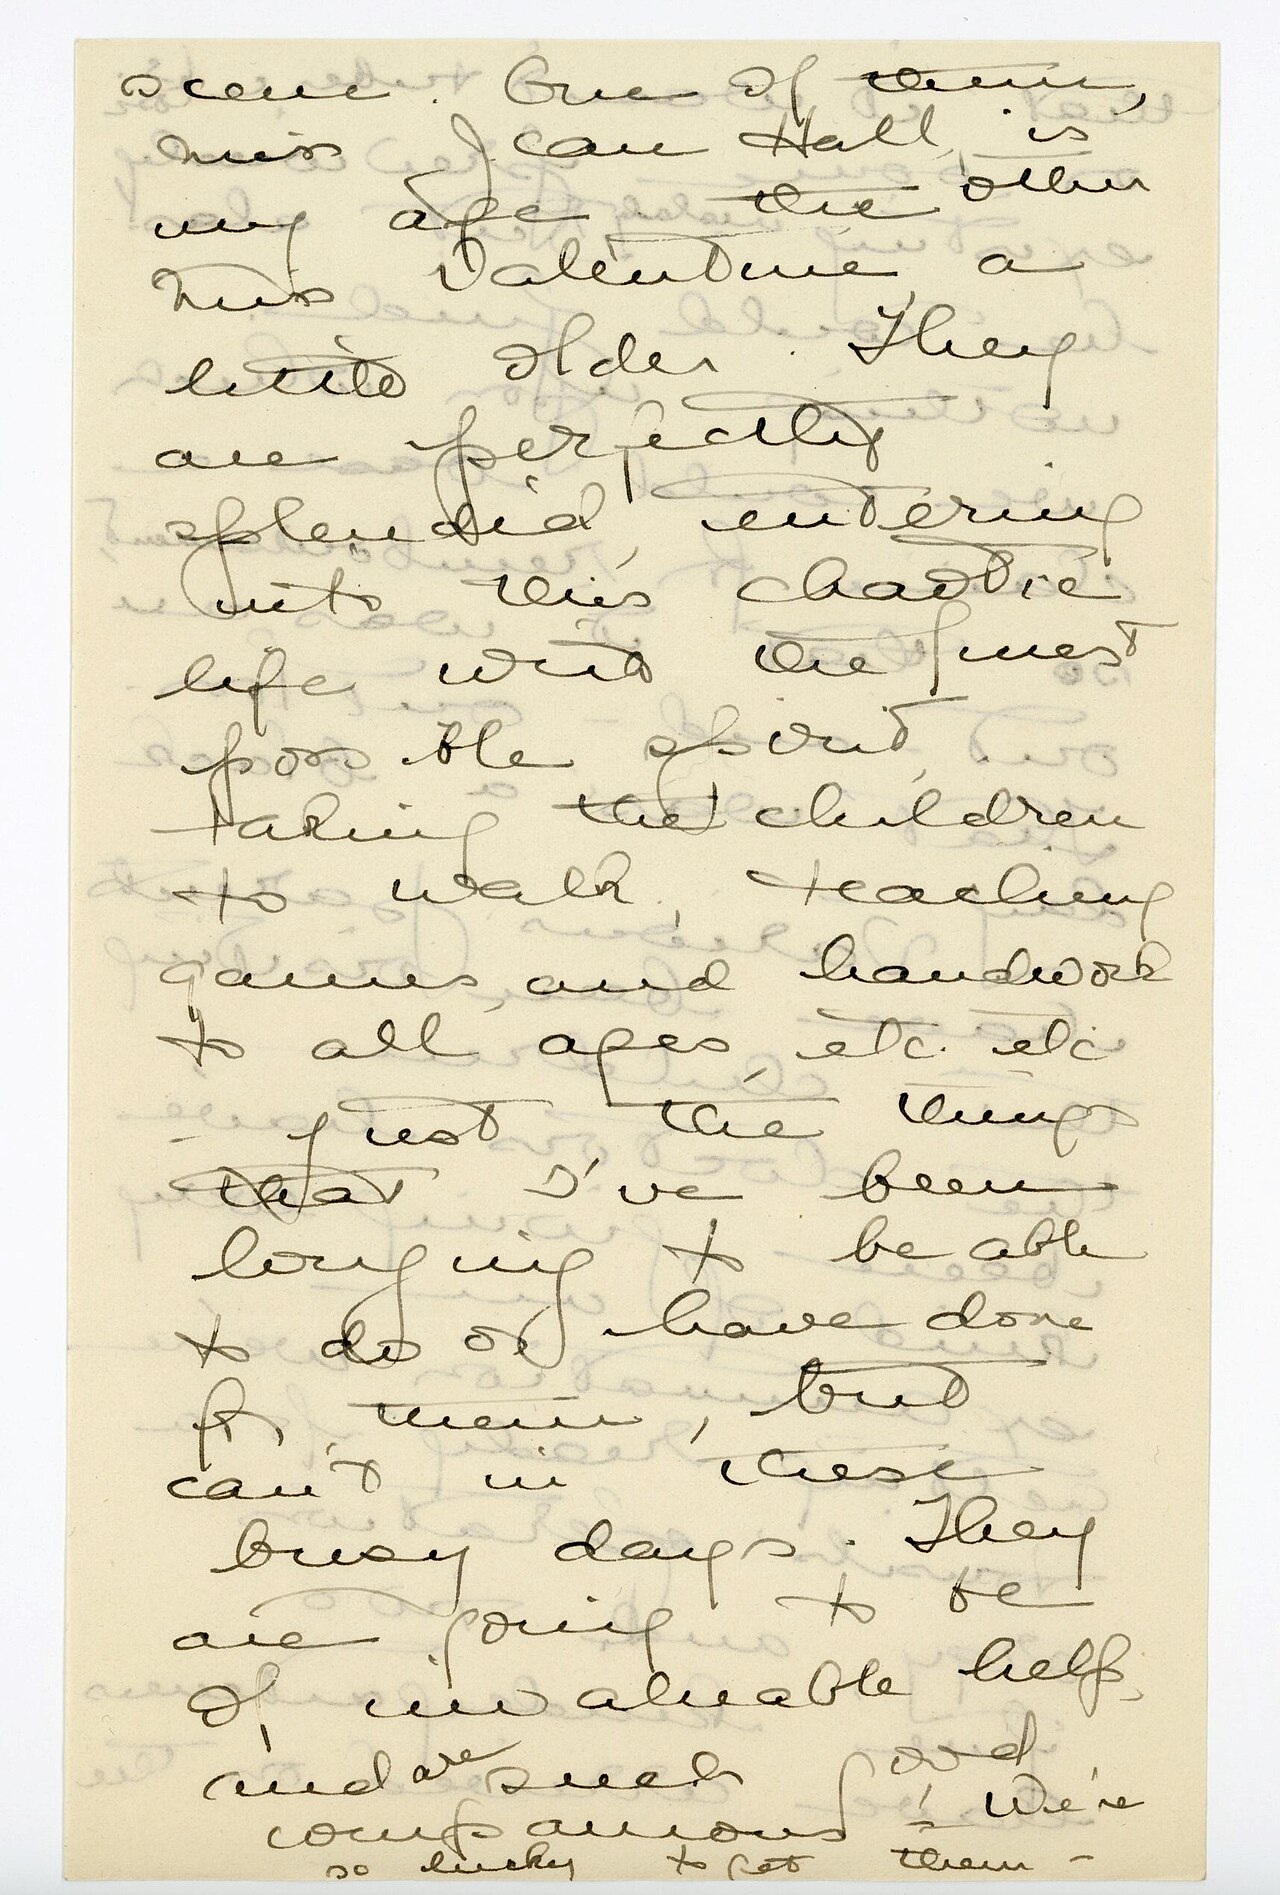 scene. One of them,
Miss Jean Hall, is
my age the other
Miss Valentine, a
little older. They
are perfectly
splendid, entering
into this chaotic
life with the finest
possible spirit,
taking the children
to walk, teaching
games, and handwork
to all ages, etc. etc
- just the things
that I've been
longing to be able
to do or have done
for them, but
can't in these
busy days. They
are going to be
of invaluable help,
and are such good
companions! We're
so lucky to get them -